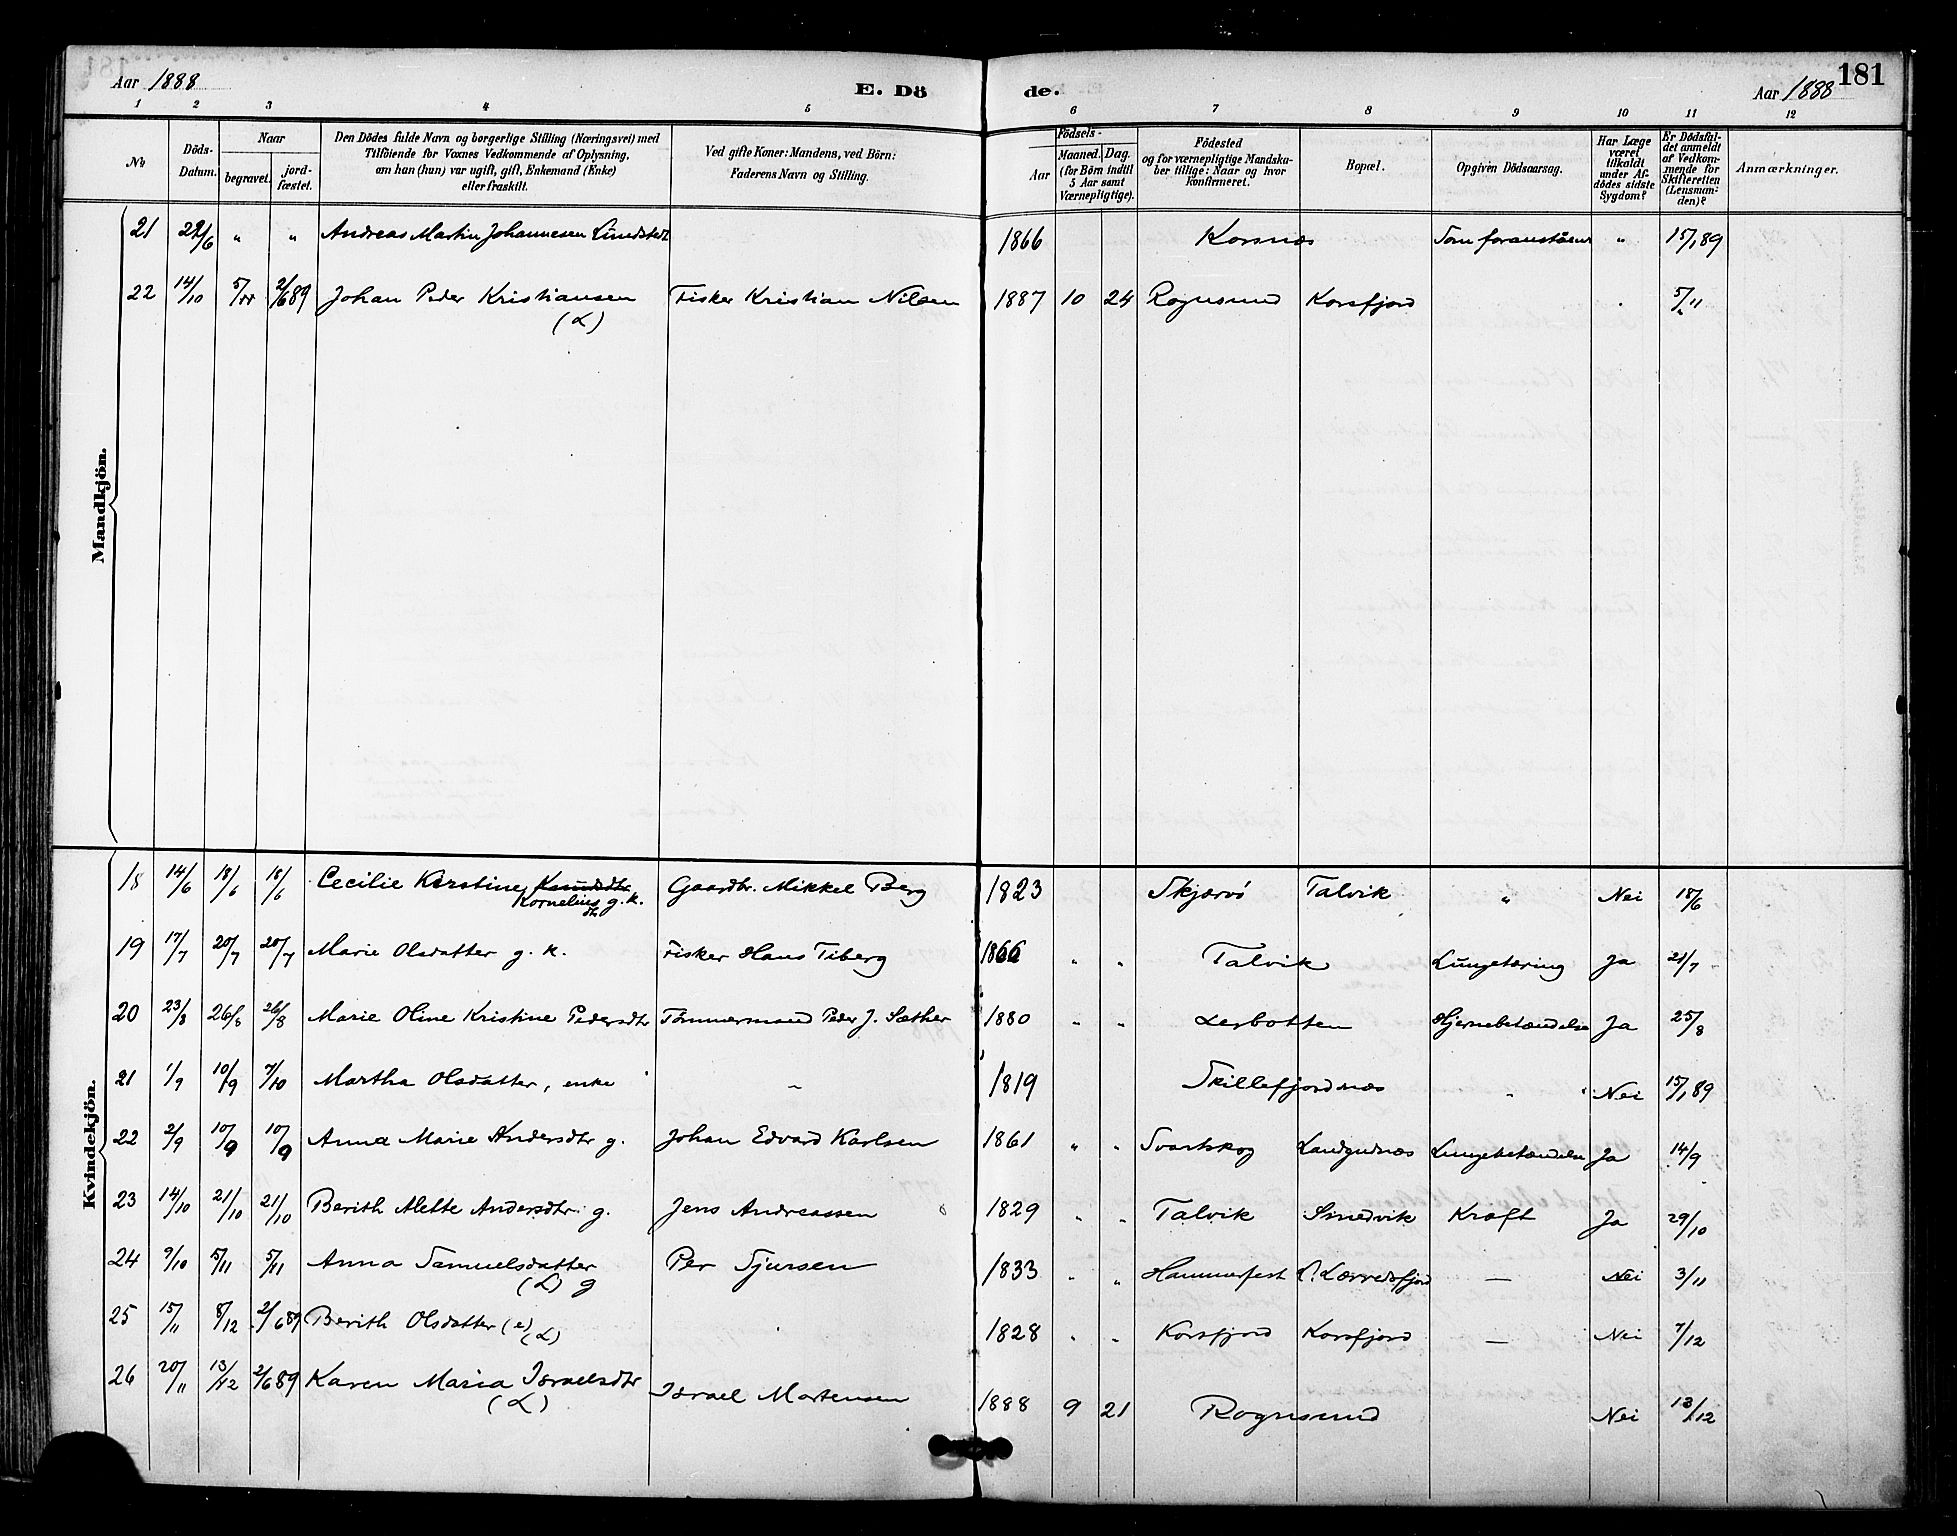 Aar 1888
E. Dö
de.
Aar 1888
181
1 2 3 4 5 6 7 8 9 10 11 12
No
Döds-
Datum.
Naar
begravet.
jord-
fæstet.
Den Dödes fulde Navn og borgerlige Stilling (Næringsvei) med
Tilföiende for Voxnes Vedkommende af Oplysning,
om han (hun) var ugift, gift, Enkemand (Enke)
eller fraskilt.
Ved gifte Koner: Mandens, ved Börn:
Faderens Navn og Stilling.
Födsels-
Aar
Maaned. Dag.
(for Börn indtil
5 Aar samt
Værnepligtige).
Födested
og for værnepligtige Mandska-
ber tillige: Naar og hvor
konfirmeret.
Bopæl.
Opgiven Dödsaarsag.
Har Læge
været
tilkaldt
under Af-
dödes sidste
Sygdom?
Er Dödsfal-
det anmeldt
af Vedkom-
mende for
Skifteretten
(Lensman-
den)?
Anmærkninger.
Mandkjön.
21 /6 " " Andreas Martin Johannesen Lundstedt 1866 Korsnæs Som foranstående " 15/1 89
22 14/10 5/11 2/6 89 Johan Peder Kristiansen Fisker Kristian Nilsen 1887 10 24 Rognsund Korsfjord 5/11
(L)
Kvindekjön.
18 14/6 18/6 18/6 Cecilie Kirstine Knudsdtr Gaardbr. Mikkel Berg 1823 Skjærvö Talvik " Nei 18/6
Kornelius g. k.
dtr
19 17/7 20/7 20/7 Marie Olsdatter g. k. Fisker Hans Tiberg 1866 " " Talvik Lungetæring Ja 21/7
20 23/8 26/8 26/8 Marie Oline Kristine Pedersdtr Tömmermand Peder J. Sæther 1880 " " Lerbotten Hjernebetændelse Ja 25/8
21 1/9 10/9 7/10 Martha Olsdatter, enke " 1819 Skillefjordnæs " Nei 15/1 89
22 2/9 10/9 10/9 Anna Marie Andersdtr g. Johan Edvard Karlsen 1861 " " Svartskog Langnæs Lungebetændelse Ja 14/9
23 14/10 21/10 21/10 Berith Mette Andersdtr g. Jens Andreassen 1829 " " Talvik Simavik Kræft Ja 29/10
24 9/10 5/11 5/11 Anna Samuelsdatter Per Sjursen 1833 " " Hammerfest L. Lerredsfjord — Nei 3/11
(L) g
25 15/11 8/12 2/6 89 Berith Olsdatter (e) 1828 " " Korsfjord Korsfjord — Nei 7/12
(L)
26 20/11 13/12 2/6 89 Karen Maria Israelsdtr Israel Mortensen 1888 9 21 Rognsund Nei 13/12
(L)